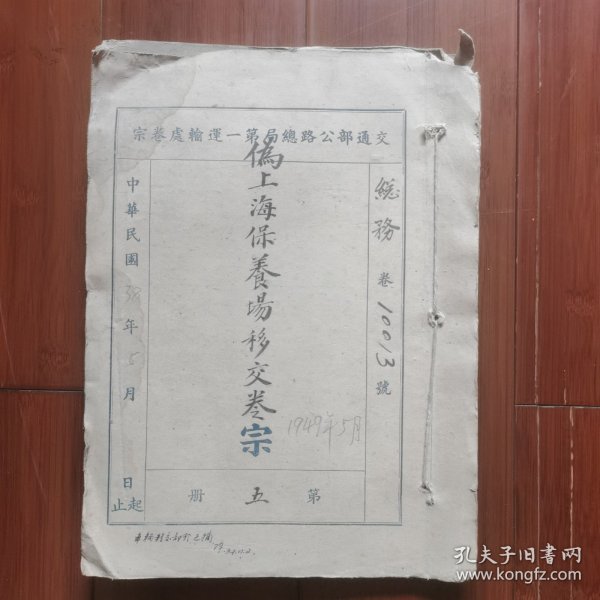 交通部公路總局第一運輸處卷宗
總務卷10013號
偽上海保養場移交卷宗
1949年5月
中華民國38年5月 日起止
第五册
孔夫子旧书网
www.kongfz.com